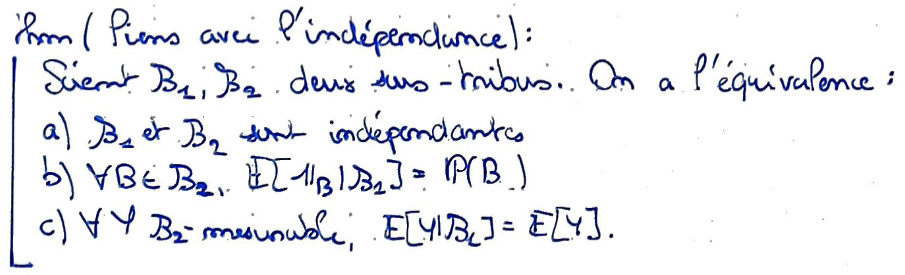 Thm (Liens avec l'indépendance):
Soient B₁, B₂ deux sous-tribus. On a l'équivalence :
a) B₁ et B₂ sont indépendantes
b) ∀B ∈ B₂, E[1_B|B₁] = P(B)
c) ∀ Y B₂-mesurable, E[Y|B₁] = E[Y].